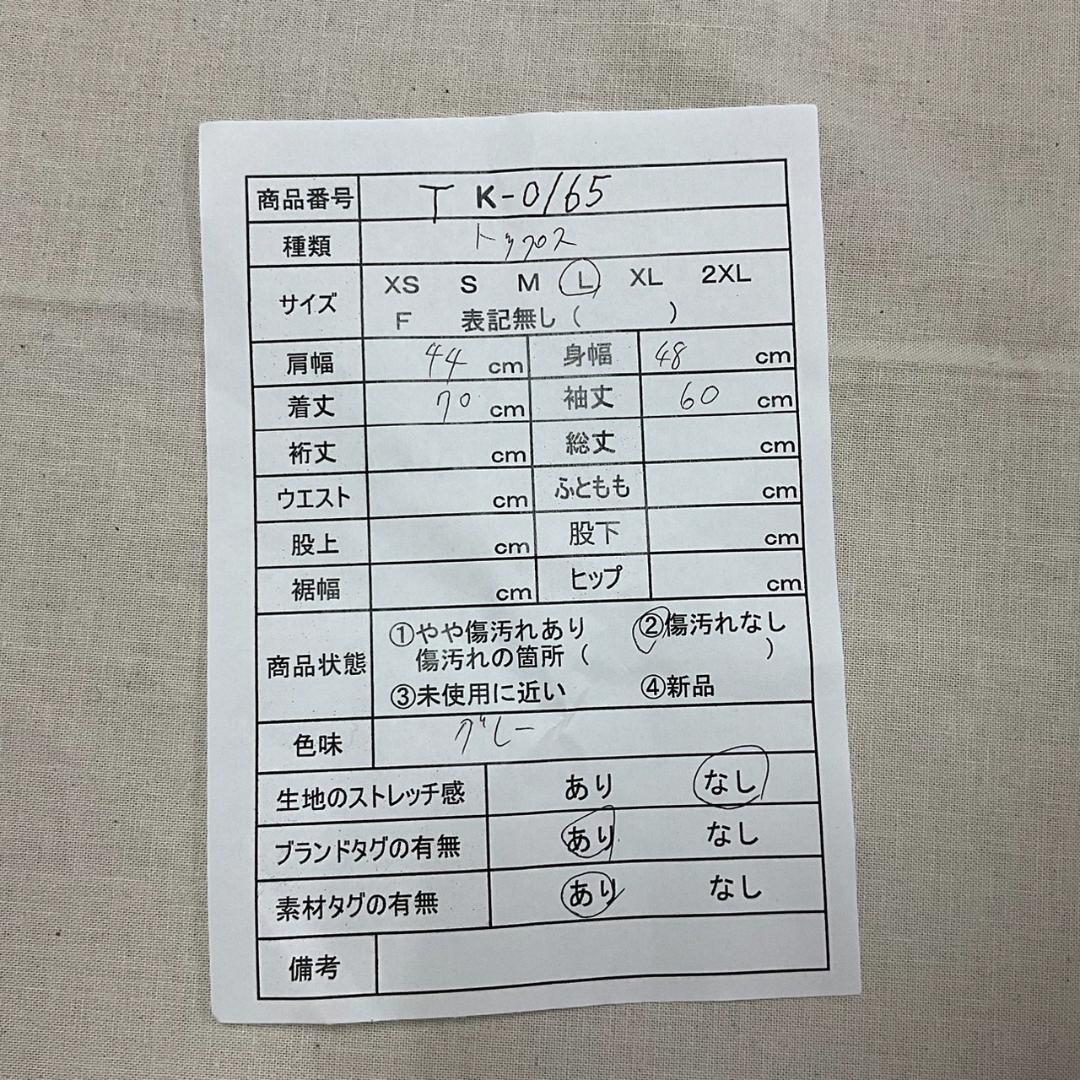 商品番号 T K-0165
種類 トップス
サイズ XS S M L XL 2XL
F 表記無し（ ）
肩幅 44 cm 身幅 48 cm
着丈 70 cm 袖丈 60 cm
裄丈 cm 総丈 cm
ウエスト cm ふともも cm
股上 cm 股下 cm
裾幅 cm ヒップ cm
商品状態 ①やや傷汚れあり ②傷汚れなし
傷汚れの箇所（ ）
③未使用に近い ④新品
色味 グレー
生地のストレッチ感 あり なし
ブランドタグの有無 あり なし
素材タグの有無 あり なし
備考